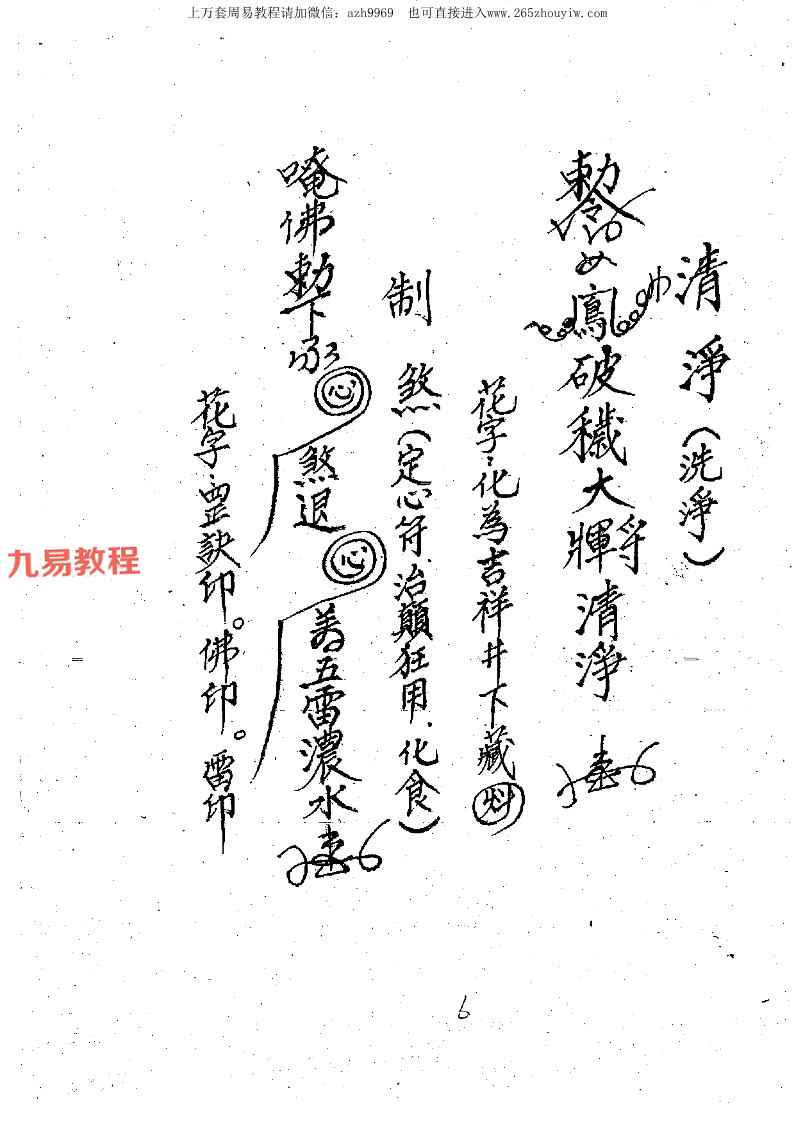 上万套周易教程请加微信：azh9969 也可直接进入www.265zhouyiw.com
清淨（洗淨）
勅令 鳳破穢大将暉清淨
花字：化為吉祥井下藏
制煞（定心符治顛狂用、化食）
唵佛勅下 心煞退心 五雷濃水
花字：罡訣印。佛印。雷印
九易教程
6